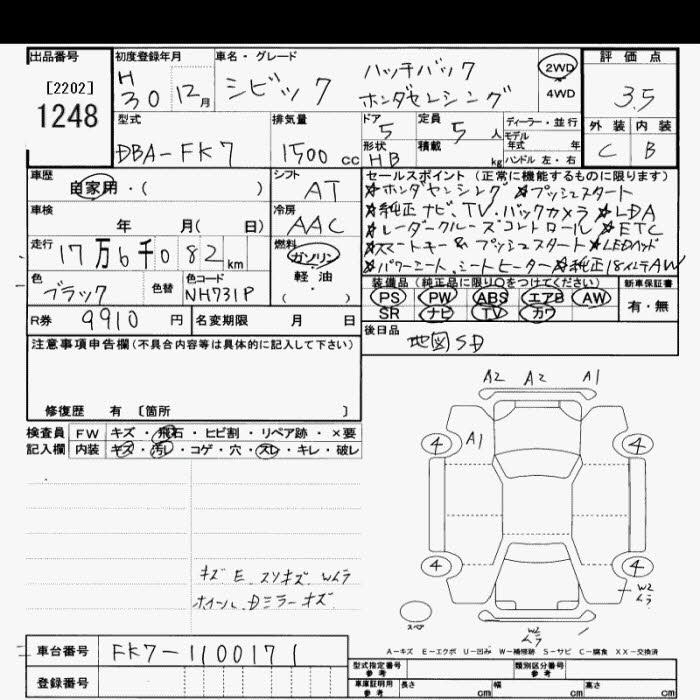 出品番号 初度登録年月 車名・グレード 評価点
[2202] H ハッチバック 2WD
1248 30 12月 シビック ホンダセンシング 4WD 3.5
型式 排気量 ドア 定員 ディーラー・並行 外装 内装
5 5人 モデル年式 年
DBA-FK7 1500 cc 形状 積載 C B
HB kg ハンドル 左・右
車歴 シフト セールスポイント(正常に機能するものに限ります)
自家用・( ) AT ☆ホンダセンシング ☆プッシュスタート
車検 冷房 ☆純正ナビ、TV、バックカメラ ☆LDA
年 月( 日) AAC ☆レーダークルーズコントロール ☆ETC
走行 燃料 ☆スマートキー&プッシュスタート ☆LEDヘッド
17万6千082km ガソリン ☆パワーシート、シートヒーター ☆純正18インチAW
色 色替 色コード 軽・油 装備品(純正品に限り○をつけてください) 新車保証書
ブラック NH731P ( ) PS PW ABS エアB AW 有・無
SR ナビ TV カワ
R券 9910円 名変期限 月 日 後日品
地図SD
注意事項申告欄(不具合内容等は具体的に記入して下さい)
修復歴 有 〔箇所 〕
A2 A2 A1
検査員 FW キズ・飛石・ヒビ割・リペア跡・×要
記入欄 内装 キズ・汚レ・コゲ・穴・スレ・キレ・破レ
4 A1 4
4 4
キズ E スリキズ Wムラ W2
ホイール、Dミラーキズ ムラ
スペア W2
ムラ
A-キズ E-エクボ U-凹み W-補修跡 S-サビ C-腐食 XX-交換済
車台番号 FK7-1100171
型式指定番号 参考 類別区分番号 参考
登録番号 車庫証明用 参考 長さ cm 幅 cm 高さ cm